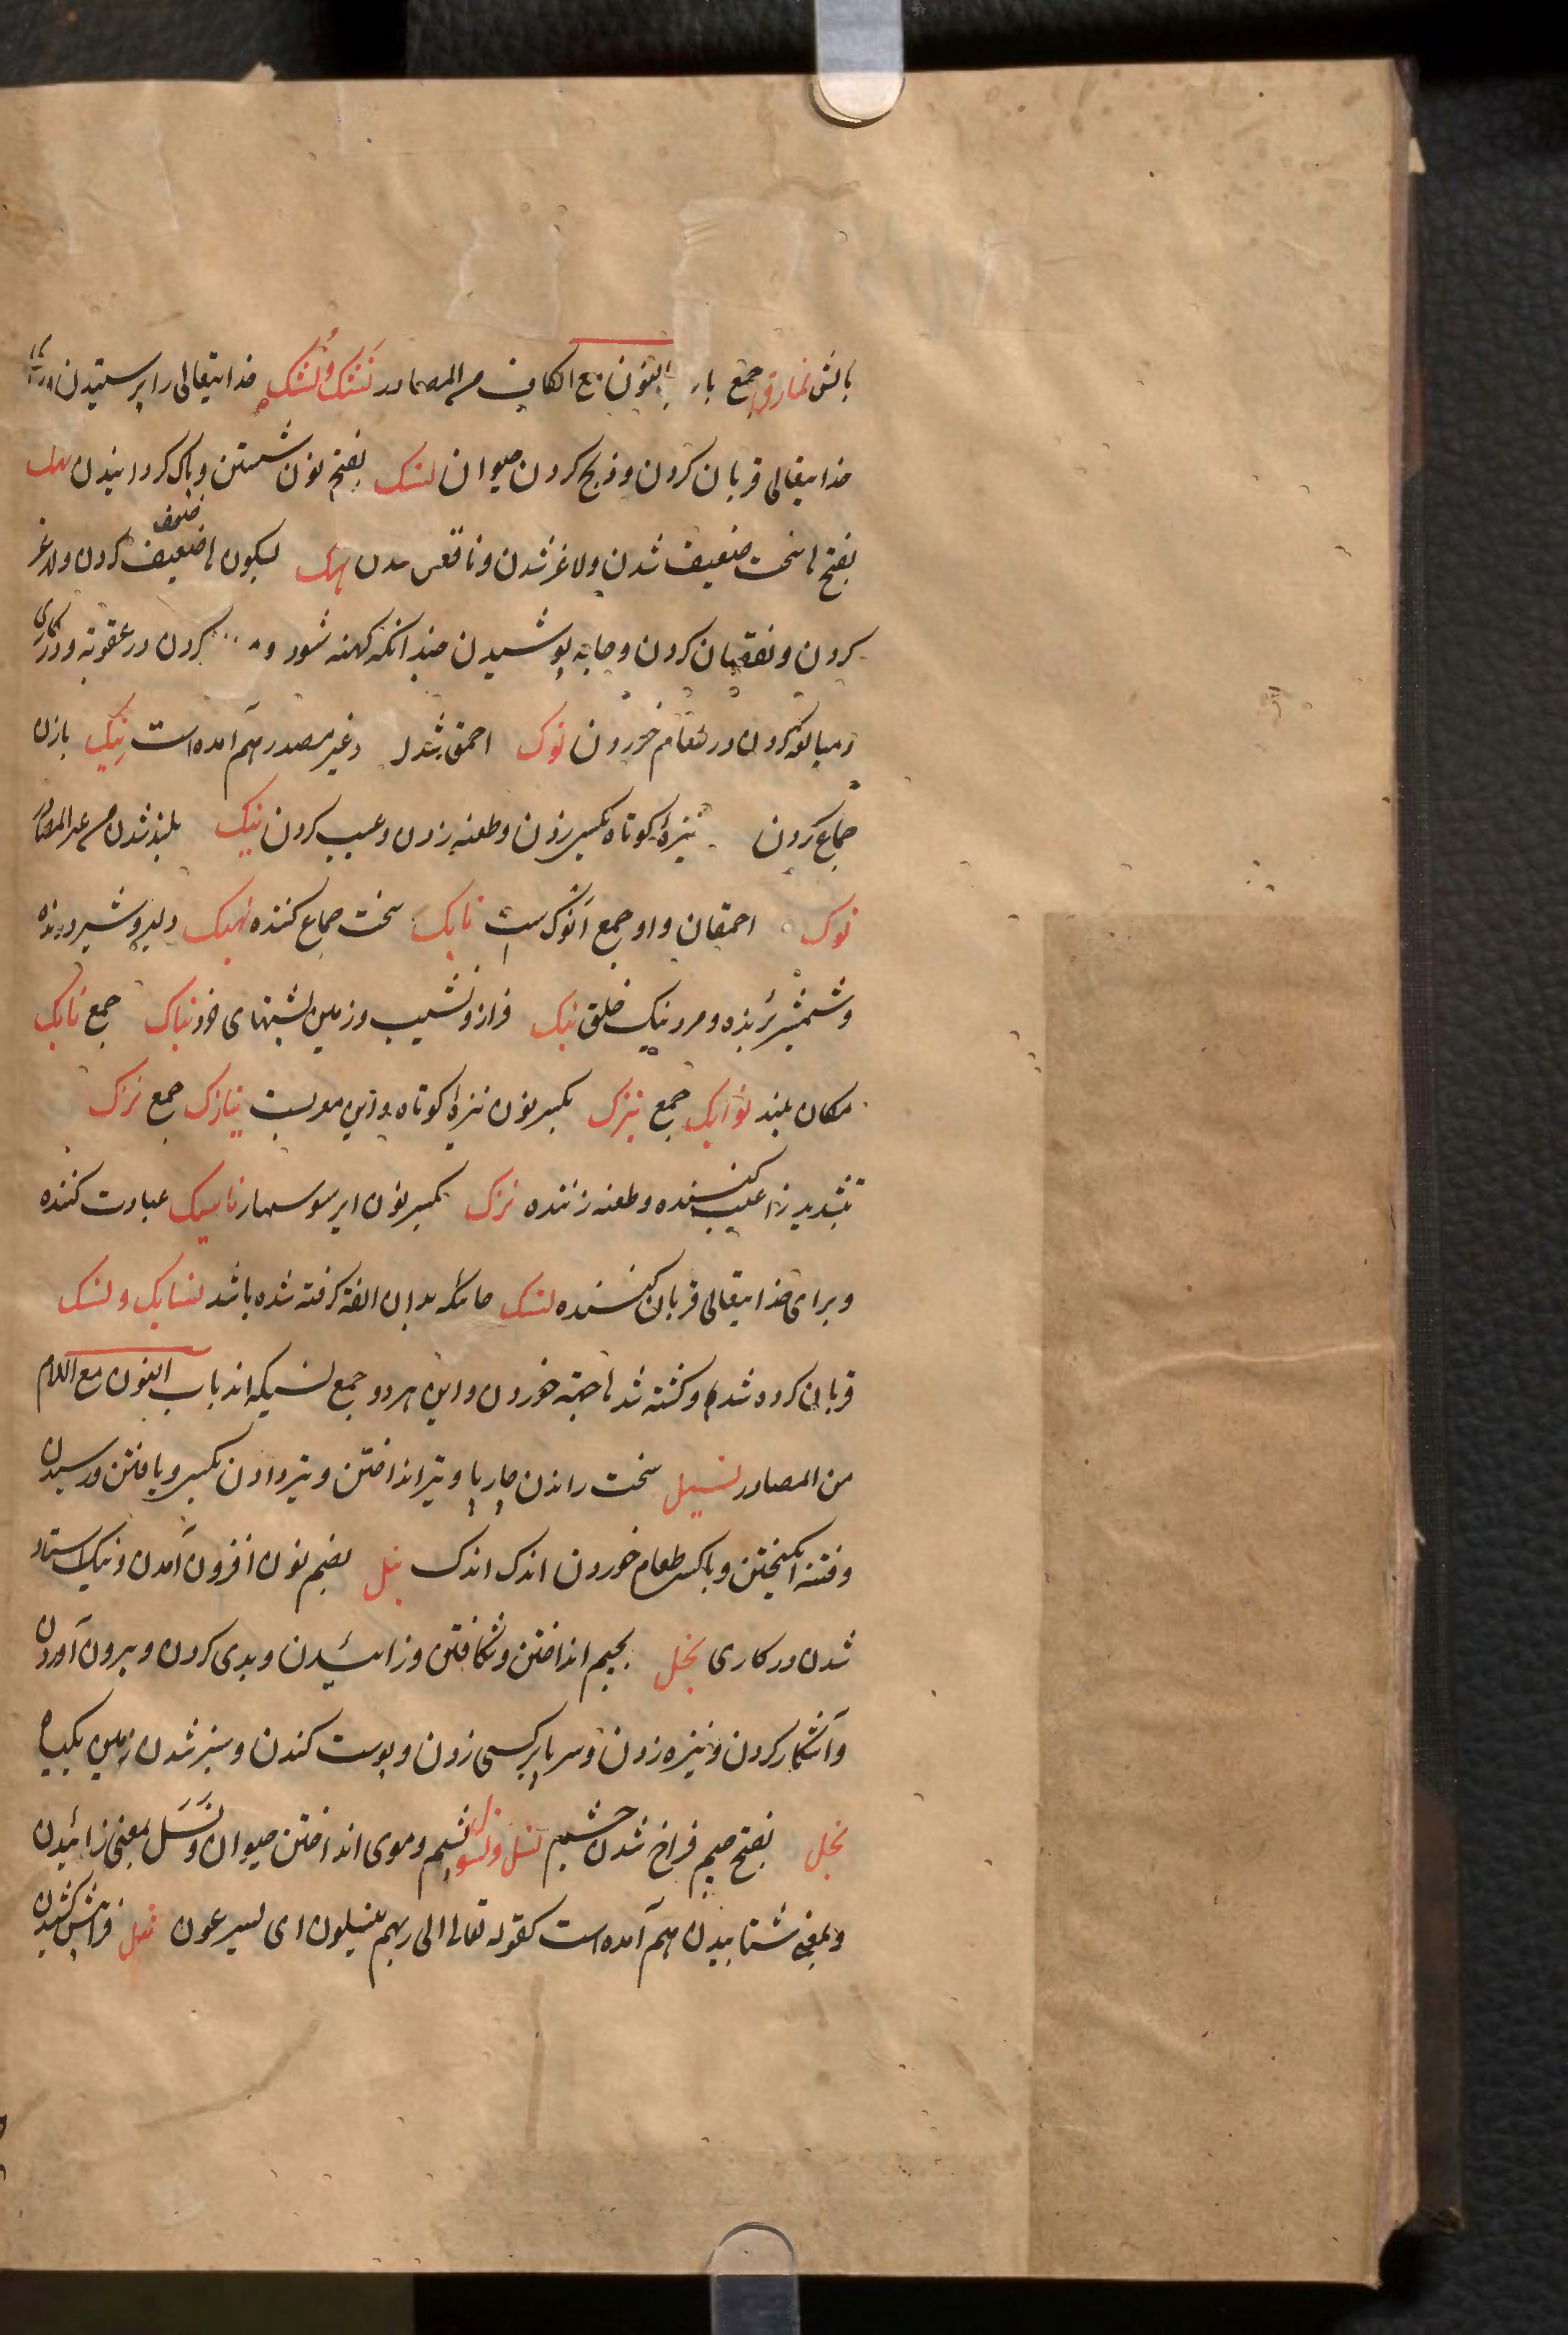 بالش نمارق جمع باب النون مع الکاف من المصادر نَسَک و نُسُک خدایتعالی را پرستیدن و برای
خدایتعالی قربان کردن و ذبح کردن حیوان نسک بفتح نون شستن و پاک کردانیدن نهک
بفتح ها سخت ضعیف شدن و لاغر شدن و ناقص شدن نهک بسکون ها ضعیف کردن و لاغر
کردن و نقصان کردن و جامه پوشیدن چندانکه کهنه شود و کردن در عقوبة و در کاری
و مبالغه کردن در طعام خوردن نوک احمق شدن و غیر مصدر هم آمده است نیک بازن
جماع کردن نیزهٔ کوتاه بکسی زدن و طعنه زدن و عیب کردن نبک بلند شدن من غیر المصادر
نوک احمقان و او جمع انوک ست نایک سخت جماع کننده نهیک دلیر و شیر درنده
و شمشیر برنده و مرد نیک خلق نبک فراز و نشیب و زمین پشتهای خورد نباک جمع نابک
مکان بلند نوابک جمع نیزک بکسر نون نیزهٔ کوتاه و این معربست نیازک جمع نزک
بتشدید زا عیب کننده و طعنه زننده نزک بکسر نون ایر سوسمار ناسک عبادت کننده
و برای خدایتعالی قربان کننده نسک جائیکه بدان الفة کرفته شده باشد نسایک و نسک
قربان کرده شدها و کشته شدها جهة خوردن و این هر دو جمع نسیکه اند باب النون مع اللام
من المصادر نسیل سخت راندن چارپا و تیر انداختن و تیر دادن بکسی و یافتن و رسیدن
و فتنه انکیختن و باکسی طعام خوردن اندک اندک نبل بضم نون افزون آمدن و نیک استاد
شدن در کاری نجل بجیم انداختن و شکافتن و زائیدن و بدی کردن و بیرون آوردن
و آشکار کردن و نیزه زدن و سر پا بر کسی زدن و پوست کندن و سبز شدن زمین بکیاه
نجل بفتح جیم فراخ شدن چشم نسل و نسول پشم و موی انداختن حیوان و نَسَل بمعنی زائیدن
و بمعنی شتابیدن هم آمده است کقوله تعالی الی ربهم ینسلون ای یسرعون نشل فرا پیش کشیدن